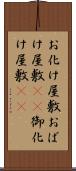 お化け屋敷おば
け屋敷御化
け屋敷